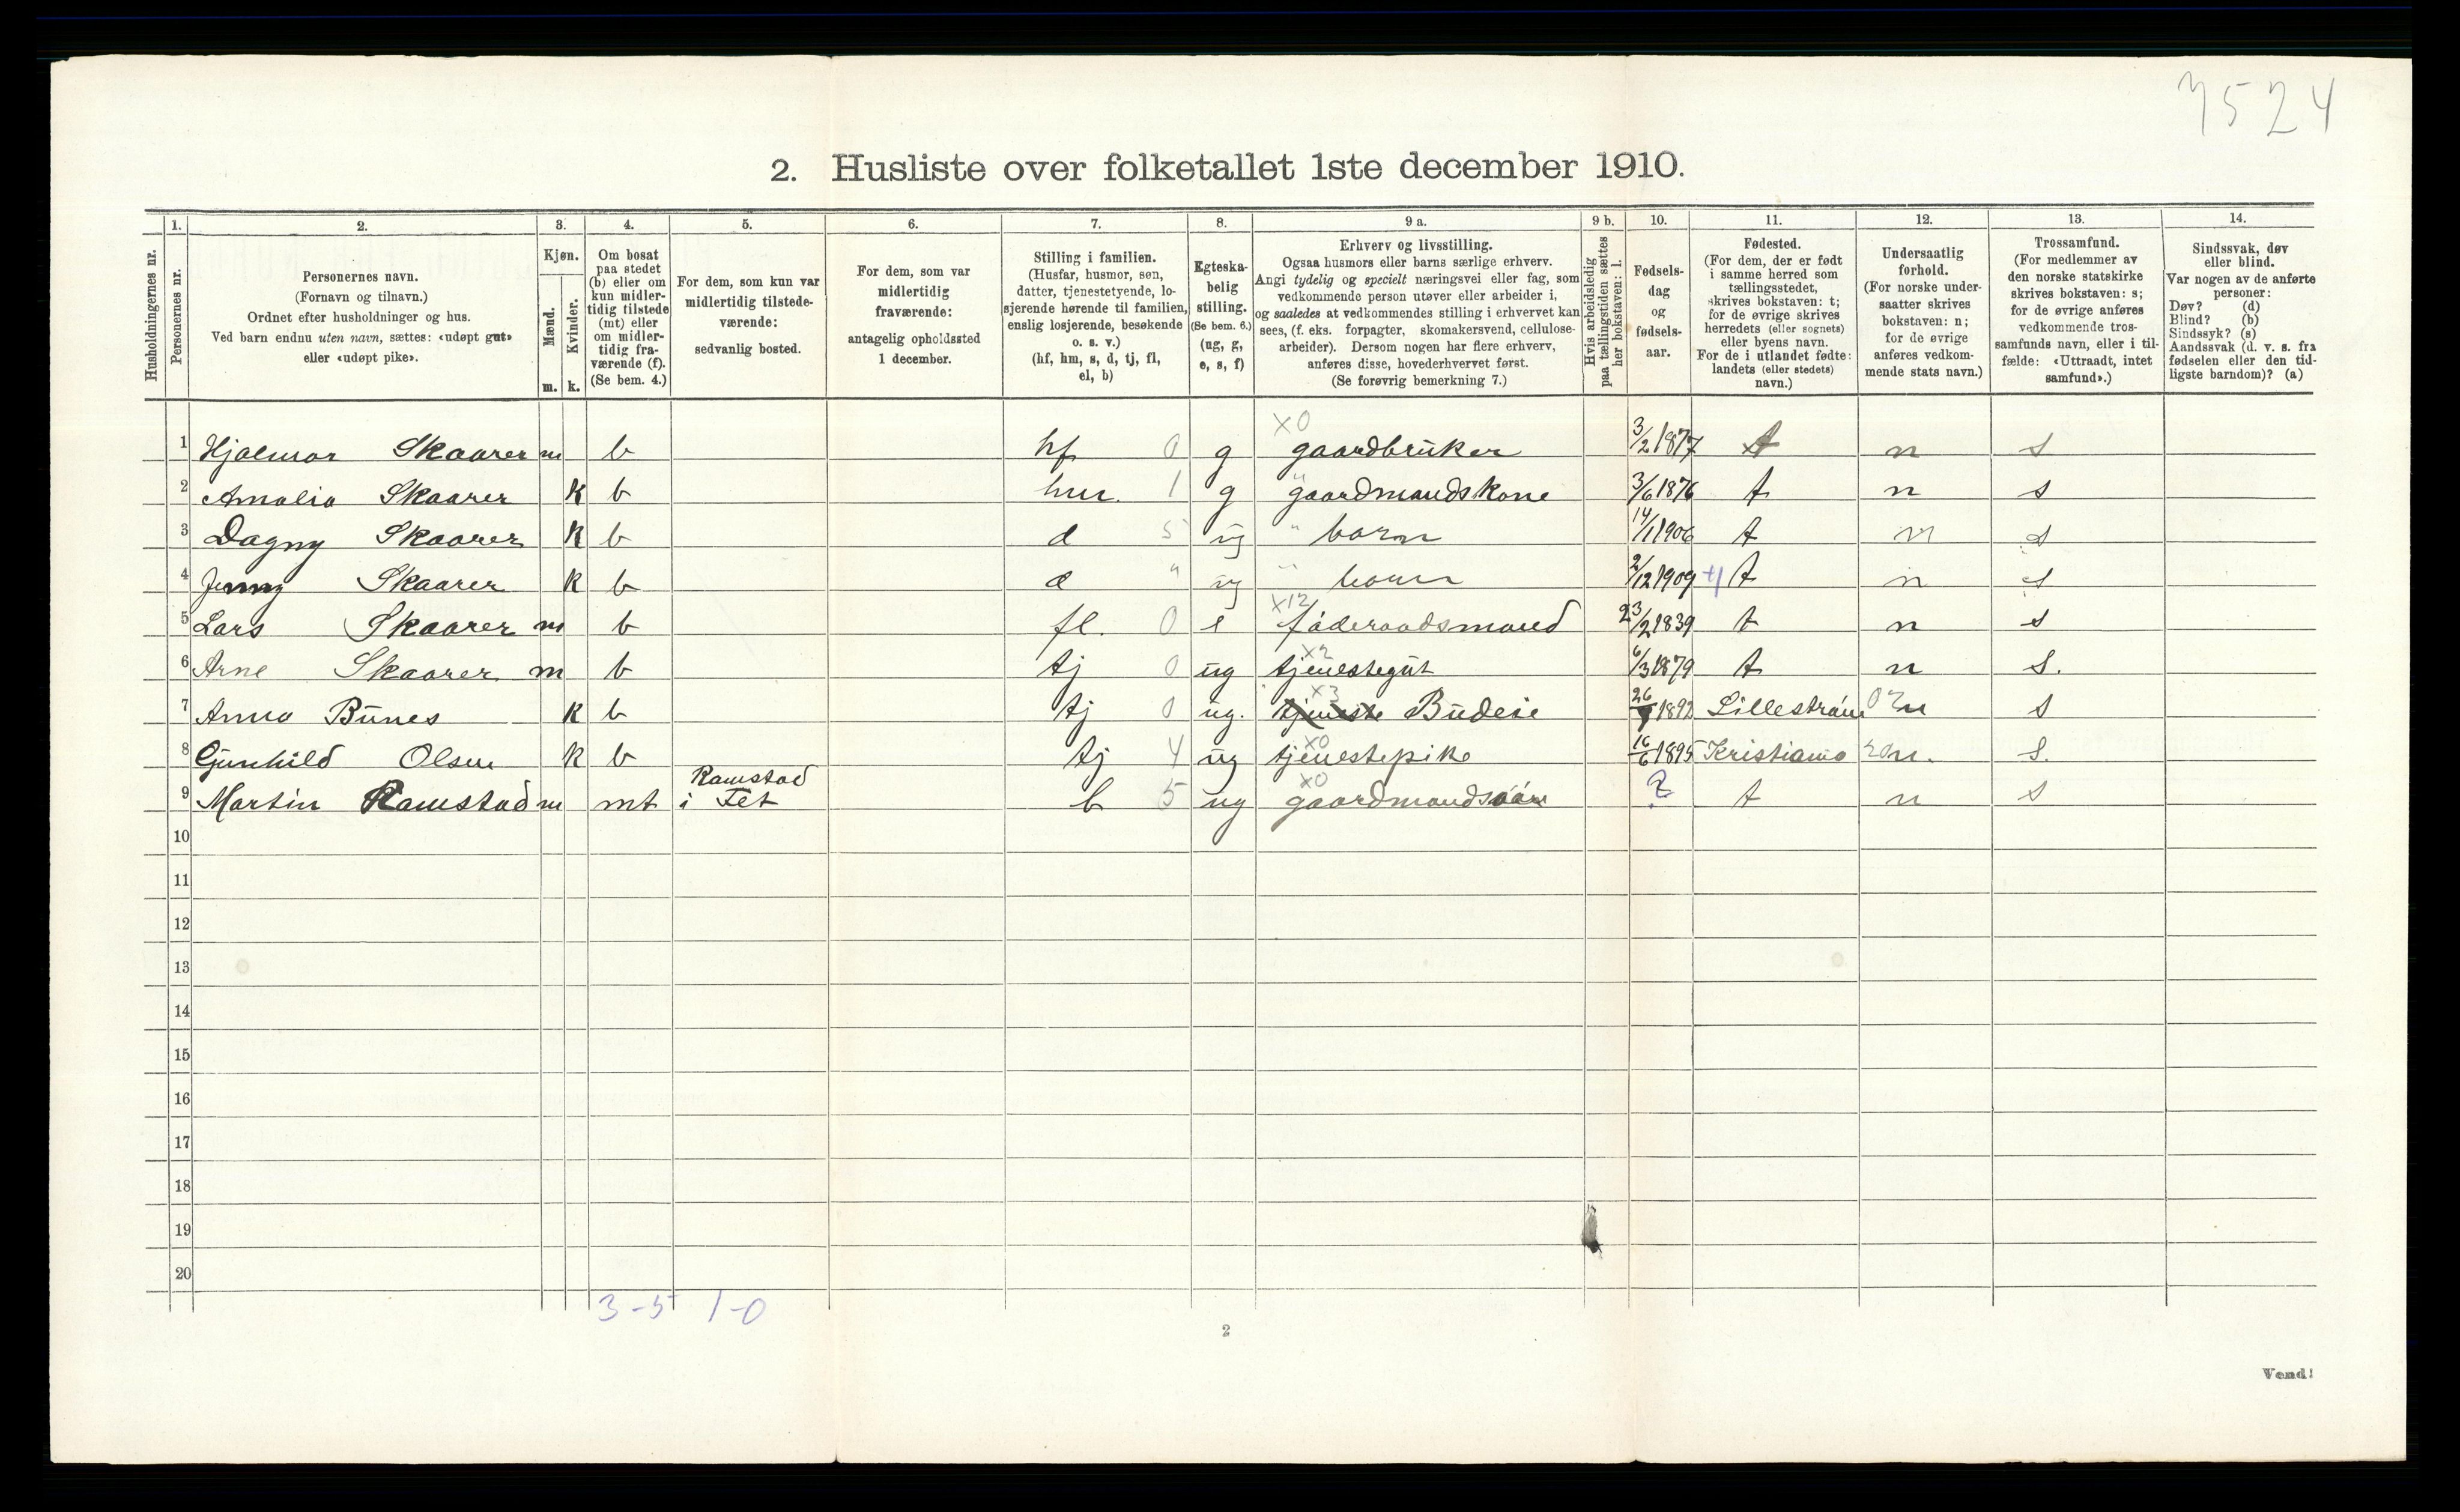 7524
2. Husliste over folketallet 1ste december 1910.
1. 2. 3. 4. 5. 6. 7. 8. 9 a. 9 b. 10. 11. 12. 13. 14.
Husholdningernes nr.
Personernes nr.
Personernes navn.
(Fornavn og tilnavn.)
Ordnet efter husholdninger og hus.
Ved barn endnu uten navn, sættes: «udøpt gut»
eller «udøpt pike».
Kjøn.
Mænd.
Kvinder.
m. k.
Om bosat
paa stedet
(b) eller om
kun midler-
tidig tilstede
(mt) eller
om midler-
tidig fra-
værende (f).
(Se bem. 4.)
For dem, som kun var
midlertidig tilstede-
værende:
sedvanlig bosted.
For dem, som var
midlertidig
fraværende:
antagelig opholdssted
1 december.
Stilling i familien.
(Husfar, husmor, søn,
datter, tjenestetyende, lo-
sjerende hørende til familien,
enslig losjerende, besøkende
o. s. v.)
(hf, hm, s, d, tj, fl,
el, b)
Egteska-
belig
stilling.
(Se bem. 6.)
(ug, g,
e, s, f)
Erhverv og livsstilling.
Ogsaa husmors eller barns særlige erhverv.
Angi tydelig og specielt næringsvei eller fag, som
vedkommende person utøver eller arbeider i,
og saaledes at vedkommendes stilling i erhvervet kan
sees, (f. eks. forpagter, skomakersvend, cellulose-
arbeider). Dersom nogen har flere erhverv,
anføres disse, hovederhvervet først.
(Se forøvrig bemerkning 7.)
Hvis arbeidsledig
paa tællingstiden sættes
her bokstaven: l.
Fødsels-
dag
og
fødsels-
aar.
Fødested.
(For dem, der er født
i samme herred som
tællingsstedet,
skrives bokstaven: t;
for de øvrige skrives
herredets (eller sognets)
eller byens navn.
For de i utlandet fødte:
landets (eller stedets)
navn.)
Undersaatlig
forhold.
(For norske under-
saatter skrives
bokstaven: n;
for de øvrige
anføres vedkom-
mende stats navn.)
Trossamfund.
(For medlemmer av
den norske statskirke
skrives bokstaven: s;
for de øvrige anføres
vedkommende tros-
samfunds navn, eller i til-
fælde: «Uttraadt, intet
samfund».)
Sindssvak, døv
eller blind.
Var nogen av de anførte
personer:
Døv? (d)
Blind? (b)
Sindssyk? (s)
Aandssvak (d. v. s. fra
fødselen eller den tid-
ligste barndom)? (a)
x0
1 Hjalmar Skaarer m b hf 0 g gaardbruker 3/2 1877 t n s
2 Amalia Skaarer k b hm. 1 g " gaardmandskone 3/6 1876 t n s
3 Dagny Skaarer k b d 5 ug " barn 14/1 1906 t n s
4 Jenny Skaarer k b d " ug " barn 2/12 1909 t n s
x12
5 Lars Skaarer m b fl. 0 e føderaadsmand 23/2 1839 t n s
x2
6 Arne Skaarer m b tj 0 ug tjenestegut 6/3 1879 t n s.
x3
7 Anna Bünes k b tj 0 ug. tjeneste Budeie 26/ 1892 Lillestrøm n s
x0
8 Gunhild Olsen k b tj 4 ug tjenestepike 16/6 1895 Kristiania n. s.
Ramstad x0
9 Martin Ramstad m mt i Fet b 5 ug gaardmandssøn ? t n s
10
11
12
13
14
15
16
17
18
19
20
3-5 1-0
2
Vend!